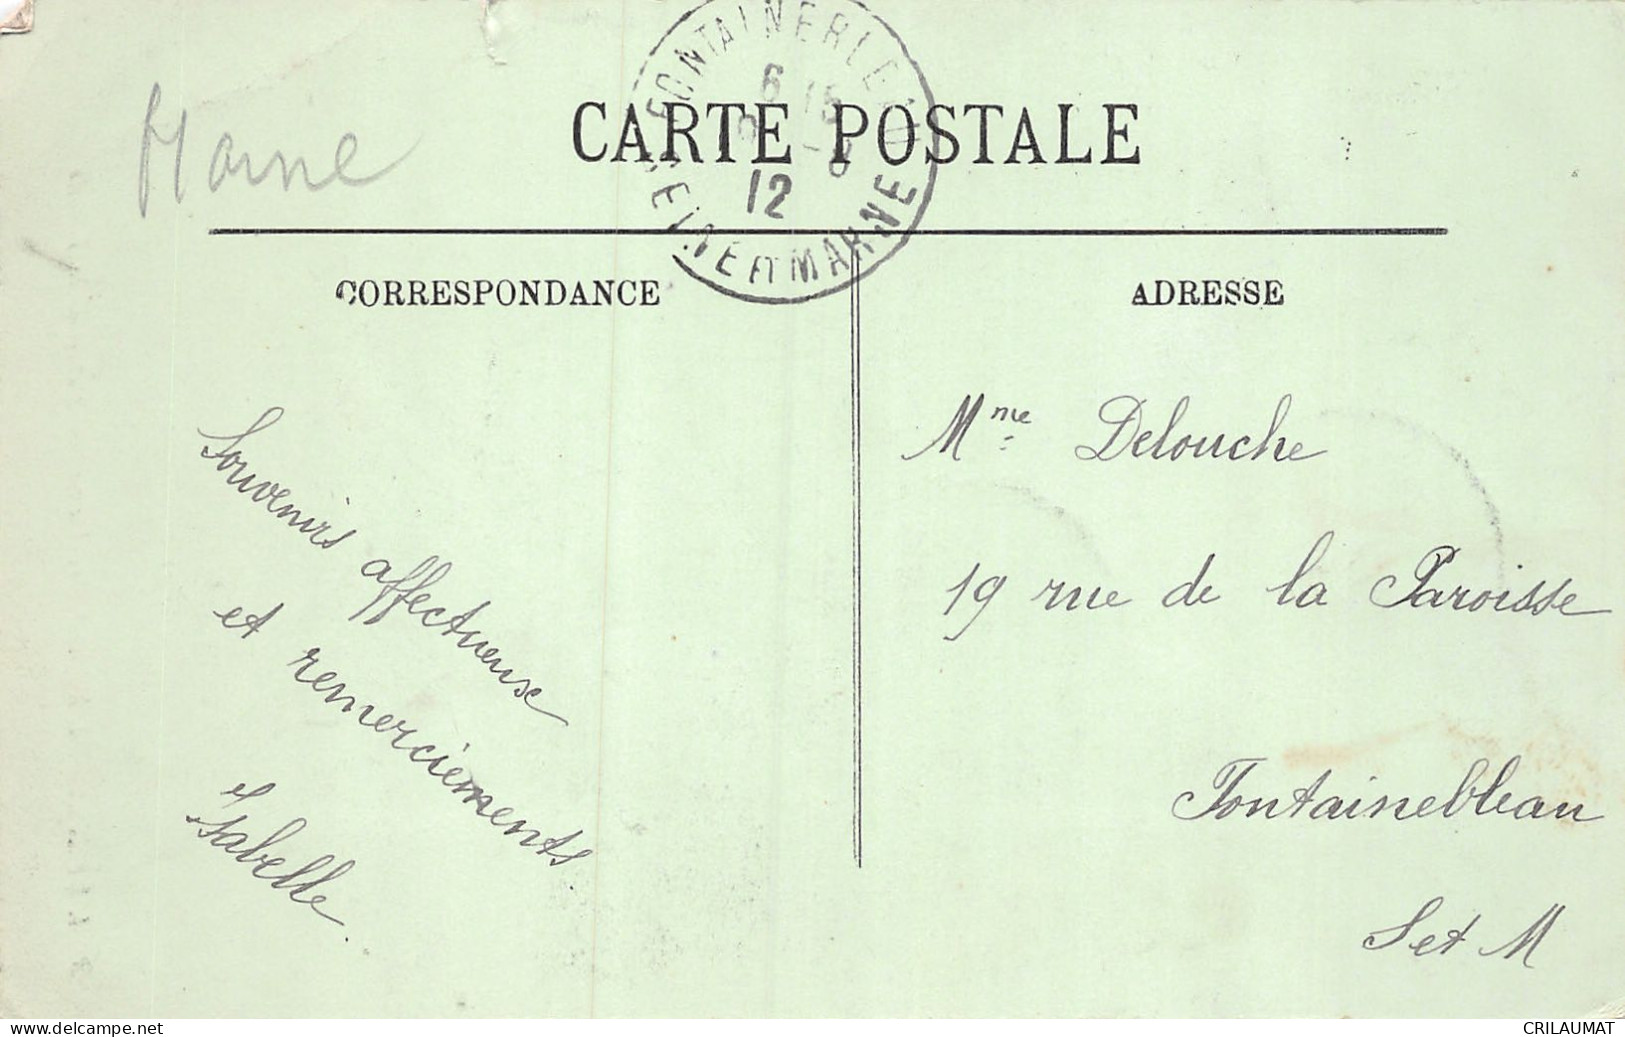 Marne
CARTE POSTALE
FONTAINEBLEAU
6 15
12
SEINE ET MARNE
CORRESPONDANCE
ADRESSE
Souvenirs affectueux
et remerciements
Isabelle.
Mme Delouche
19 rue de la Paroisse
Fontainebleau
S et M
www.delcampe.net
CRILAUMAT